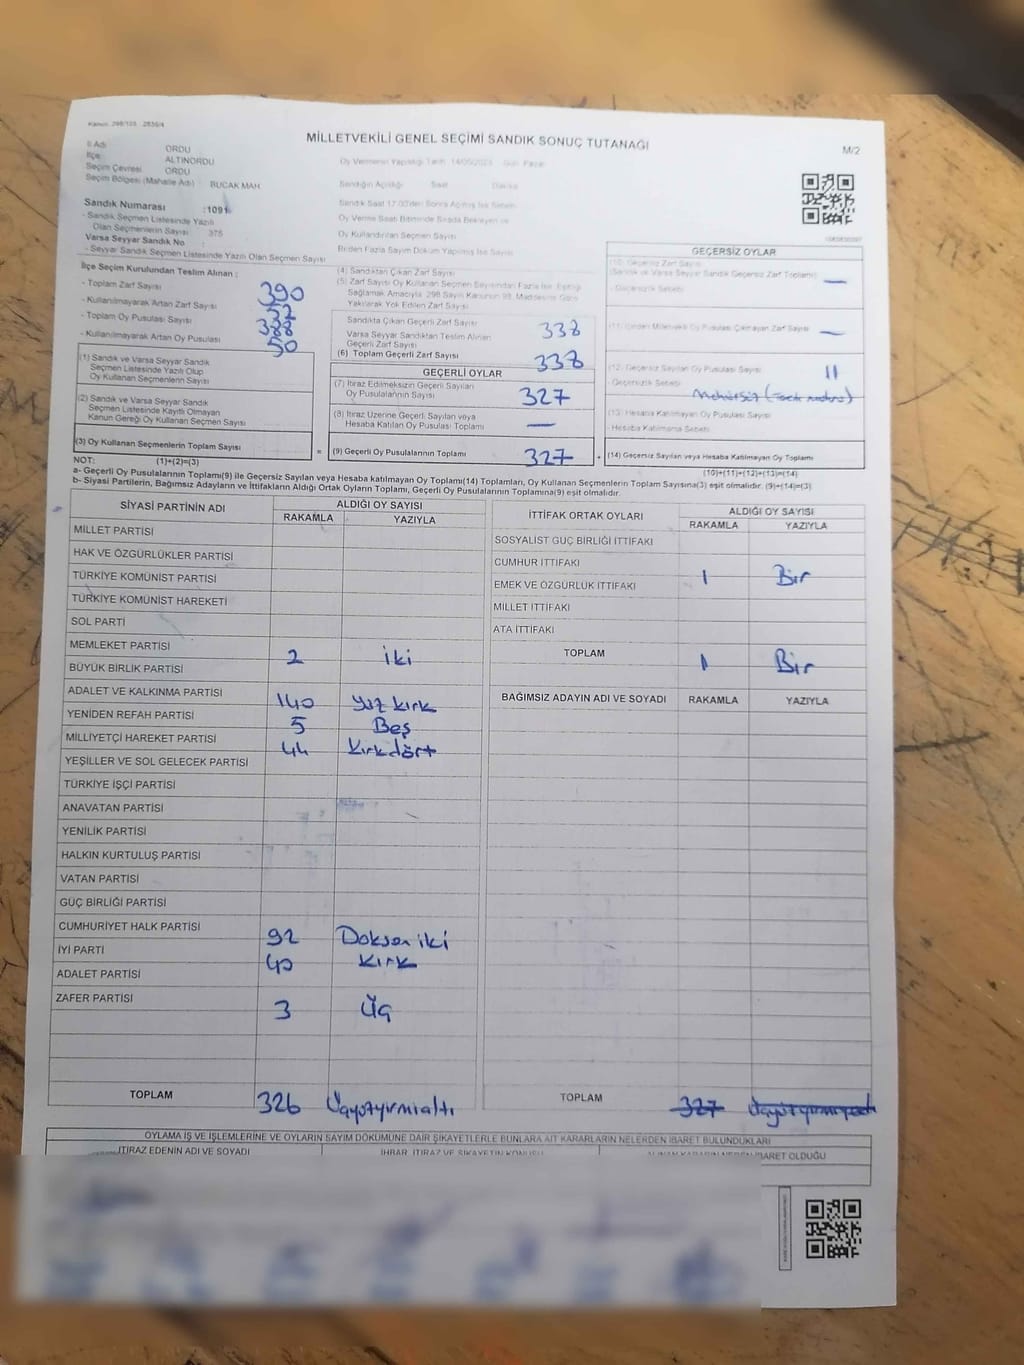 Kanun: 298/105 - 2839/4
MİLLETVEKİLİ GENEL SEÇİMİ SANDIK SONUÇ TUTANAĞI
M/2
İl Adı ORDU
İlçe ALTINORDU
Seçim Çevresi ORDU
Seçim Bölgesi (Mahalle Adı) BUCAK MAH.
Oy Vermenin Yapıldığı Tarih 14/05/2023 Gün Pazar
Sandığın Açıldığı Saat Dakika
Sandık Numarası :1091
- Sandık Seçmen Listesinde Yazılı
Olan Seçmenlerin Sayısı 375
Varsa Seyyar Sandık No :
- Seyyar Sandık Seçmen Listesinde Yazılı Olan Seçmen Sayısı
Sandık Saat 17.00'den Sonra Açılmış İse Sebebi
Oy Verme Saati Bitiminde Sırada Bekleyen ve
Oy Kullandırılan Seçmen Sayısı
Birden Fazla Sayım Döküm Yapılmış İse Sayısı
İlçe Seçim Kurulundan Teslim Alınan :
- Toplam Zarf Sayısı 390
- Kullanılmayarak Artan Zarf Sayısı
- Toplam Oy Pusulası Sayısı 388
- Kullanılmayarak Artan Oy Pusulası 50
(1) Sandık ve Varsa Seyyar Sandık
Seçmen Listesinde Yazılı Olup
Oy Kullanan Seçmenlerin Sayısı
(2) Sandık ve Varsa Seyyar Sandık
Seçmen Listesinde Kayıtlı Olmayan
Kanun Gereği Oy Kullanan Seçmen Sayısı
(3) Oy Kullanan Seçmenlerin Toplam Sayısı
(4) Sandıktan Çıkan Zarf Sayısı
(5) Zarf Sayısı Oy Kullanan Seçmen Sayısından Fazla İse, Eşitliği
Sağlamak Amacıyla, 298 Sayılı Kanunun 98. Maddesine Göre
Yakılarak Yok Edilen Zarf Sayısı
Sandıkta Çıkan Geçerli Zarf Sayısı 338
Varsa Seyyar Sandıktan Teslim Alınan
Geçerli Zarf Sayısı
(6) Toplam Geçerli Zarf Sayısı 338
GEÇERLİ OYLAR
(7) İtiraz Edilmeksizin Geçerli Sayılan
Oy Pusulalarının Sayısı 327
(8) İtiraz Üzerine Geçerli Sayılan veya
Hesaba Katılan Oy Pusulası Toplamı —
= (9) Geçerli Oy Pusulalarının Toplamı 327 +
GEÇERSİZ OYLAR
(10) Geçersiz Zarf Sayısı
(Sandık ve Varsa Seyyar Sandık Geçersiz Zarf Toplamı) —
- Geçersizlik Sebebi
(11) İçinden Milletvekili Oy Pusulası Çıkmayan Zarf Sayısı —
(12) Geçersiz Sayılan Oy Pusulası Sayısı 11
- Geçersizlik Sebebi Mühürsüz
(13) Hesaba Katılmayan Oy Pusulası Sayısı
- Hesaba Katılmama Sebebi
(14) Geçersiz Sayılan veya Hesaba Katılmayan Oy Toplamı
NOT: (1)+(2)=(3)
(10)+(11)+(12)+(13)=(14)
a- Geçerli Oy Pusulalarının Toplamı(9) ile Geçersiz Sayılan veya Hesaba katılmayan Oy Toplamı(14) Toplamları, Oy Kullanan Seçmenlerin Toplam Sayısına(3) eşit olmalıdır. (9)+(14)=(3)
b- Siyasi Partilerin, Bağımsız Adayların ve İttifakların Aldığı Ortak Oyların Toplamı, Geçerli Oy Pusulalarının Toplamına(9) eşit olmalıdır.
SİYASİ PARTİNİN ADI ALDIĞI OY SAYISI
RAKAMLA YAZIYLA
MİLLET PARTİSİ
HAK VE ÖZGÜRLÜKLER PARTİSİ
TÜRKİYE KOMÜNİST PARTİSİ
TÜRKİYE KOMÜNİST HAREKETİ
SOL PARTİ
MEMLEKET PARTİSİ 2 iki
BÜYÜK BİRLİK PARTİSİ
ADALET VE KALKINMA PARTİSİ 140 yüz kırk
YENİDEN REFAH PARTİSİ 5 Beş
MİLLİYETÇİ HAREKET PARTİSİ 44 Kırkdört
YEŞİLLER VE SOL GELECEK PARTİSİ
TÜRKİYE İŞÇİ PARTİSİ
ANAVATAN PARTİSİ
YENİLİK PARTİSİ
HALKIN KURTULUŞ PARTİSİ
VATAN PARTİSİ
GÜÇ BİRLİĞİ PARTİSİ
CUMHURİYET HALK PARTİSİ 92 Doksan iki
İYİ PARTİ 40 Kırk
ADALET PARTİSİ
ZAFER PARTİSİ 3 Üç
TOPLAM 326 Üçyüzyirmialtı
İTTİFAK ORTAK OYLARI ALDIĞI OY SAYISI
RAKAMLA YAZIYLA
SOSYALİST GÜÇ BİRLİĞİ İTTİFAKI
CUMHUR İTTİFAKI 1 Bir
EMEK VE ÖZGÜRLÜK İTTİFAKI
MİLLET İTTİFAKI
ATA İTTİFAKI
TOPLAM 1 Bir
BAĞIMSIZ ADAYIN ADI VE SOYADI RAKAMLA YAZIYLA
TOPLAM 327
OYLAMA İŞ VE İŞLEMLERİNE VE OYLARIN SAYIM DÖKÜMÜNE DAİR ŞİKAYETLERLE BUNLARA AİT KARARLARIN NELERDEN İBARET BULUNDUKLARI
İTİRAZ EDENİN ADI VE SOYADI İHBAR, İTİRAZ VE ŞİKAYETİN KONUSU ALINAN KARARIN NEDEN İBARET OLDUĞU